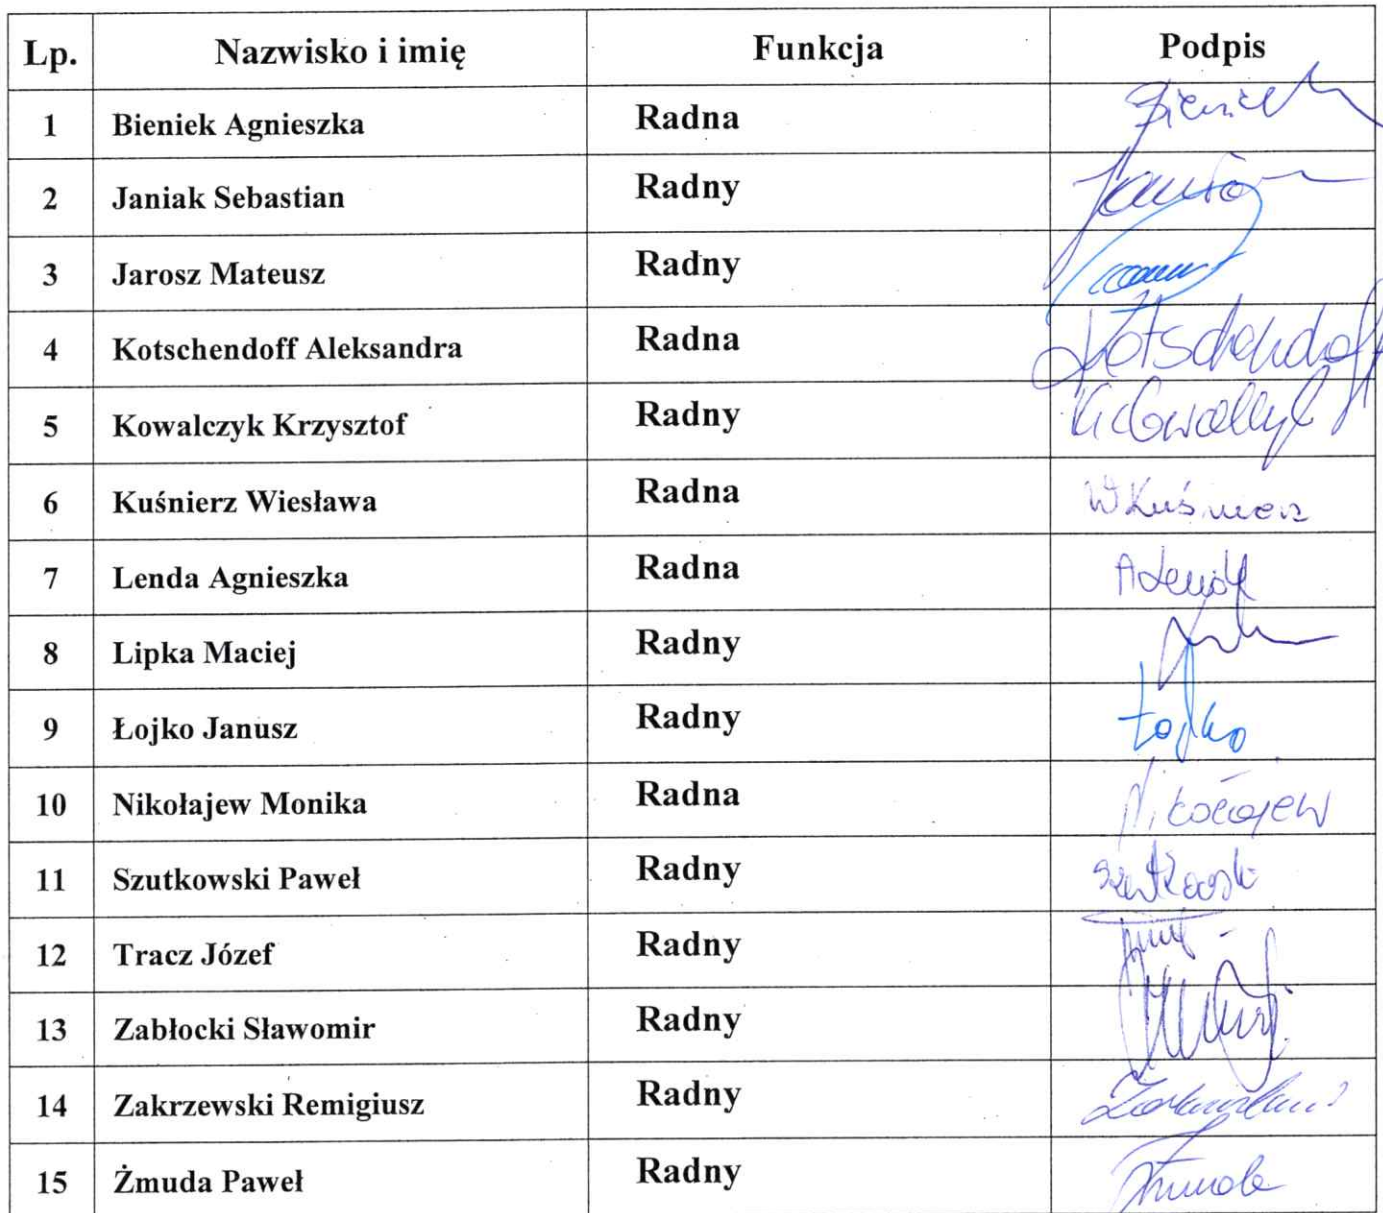 Lp. Nazwisko i imię Funkcja Podpis
1 Bieniek Agnieszka Radna Bieniek
2 Janiak Sebastian Radny
3 Jarosz Mateusz Radny
4 Kotschendoff Aleksandra Radna Kotschendoff
5 Kowalczyk Krzysztof Radny
6 Kuśnierz Wiesława Radna W Kuśnierz
7 Lenda Agnieszka Radna A Lenda
8 Lipka Maciej Radny
9 Łojko Janusz Radny Łojko
10 Nikołajew Monika Radna Nikołajew
11 Szutkowski Paweł Radny Szutkowski
12 Tracz Józef Radny
13 Zabłocki Sławomir Radny
14 Zakrzewski Remigiusz Radny
15 Żmuda Paweł Radny Żmuda